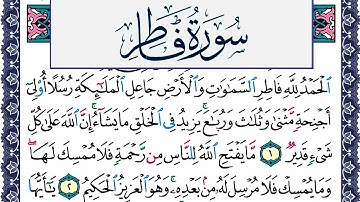 سورة فاطر
الْحَمْدُ لِلَّهِ فَاطِرِ السَّمَٰوَٰتِ وَالْأَرْضِ جَاعِلِ الْمَلَٰٓئِكَةِ رُسُلًا أُو۟لِىٓ
أَجْنِحَةٍ مَّثْنَىٰ وَثُلَٰثَ وَرُبَٰعَ ۚ يَزِيدُ فِى الْخَلْقِ مَا يَشَآءُ ۚ إِنَّ اللَّهَ عَلَىٰ كُلِّ
شَىْءٍ قَدِيرٌ ١ مَّا يَفْتَحِ اللَّهُ لِلنَّاسِ مِن رَّحْمَةٍ فَلَا مُمْسِكَ لَهَا ۖ
وَمَا يُمْسِكْ فَلَا مُرْسِلَ لَهُۥ مِنۢ بَعْدِهِۦ ۚ وَهُوَ الْعَزِيزُ الْحَكِيمُ ٢ يَٰٓأَيُّهَا